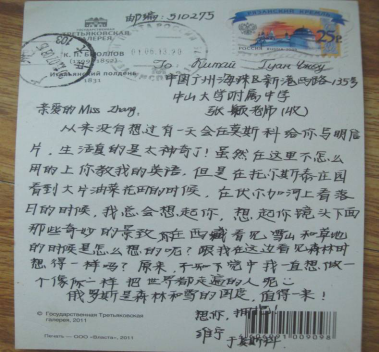 邮编:510275
ТРЕТЬЯКОВСКАЯ
ГАЛЕРЕЯ
К. П. БРЮЛЛОВ
25р
To: Китай
中国广州海珠区新港西路135号
中山大学附属中学
张颖老师(收)
亲爱的 Miss Zhang:
从来没有想过有一天会在莫斯科给你写明信
片,生活真的是太神奇了!虽然在这里不怎么
用的上你教我的英语,但是在托尔斯泰庄园
看到大片油菜花田的时候,在伏尔加河上看落
日的时候,我总会想起你,想起你镜头下面
那些奇妙的景致,在西藏看见雪山和草地
的时候是怎么想的呢?跟我在这边看见森林时
想得一样吗?原来,我一直想做一
个像你一样把世界都走遍的人呢
俄罗斯是森林和雪的国度,值得一来!
想你,
于莫斯科
© Государственная Третьяковская
галерея, 2011